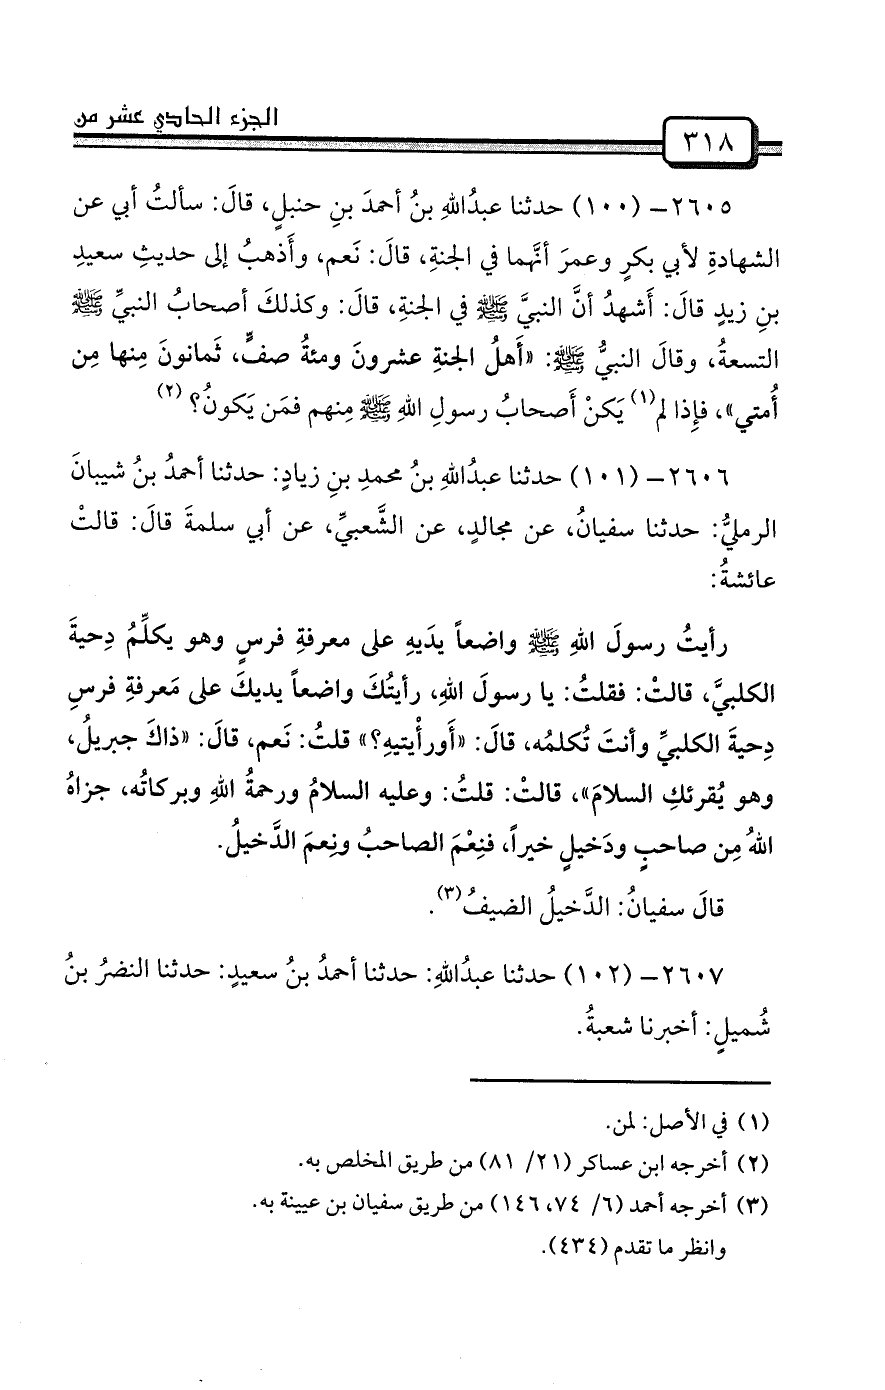 الجزء الحادي عشر من
٣١٨
٢٦٠٥- (١٠٠) حدثنا عبدُاللهِ بنُ أحمدَ بنِ حنبلٍ، قالَ: سألتُ أبي عن
الشهادةِ لأبي بكرٍ وعمرَ أنَّهما في الجنةِ، قالَ: نَعم، وأَذهبُ إلى حديثِ سعيدِ
بنِ زيدٍ قالَ: أَشهدُ أنَّ النبيَّ ﷺ في الجنةِ، قالَ: وكذلكَ أصحابُ النبيِّ ﷺ
التسعةُ، وقالَ النبيُّ ﷺ: «أَهلُ الجنةِ عشرونَ ومئةُ صفٍّ، ثَمانونَ مِنها مِن
أُمتي»، فإِذا لم(١) يَكنْ أَصحابُ رسولِ اللهِ ﷺ مِنهم فمَن يَكونُ؟(٢)
٢٦٠٦- (١٠١) حدثنا عبدُاللهِ بنُ محمدِ بنِ زيادٍ: حدثنا أحمدُ بنُ شيبانَ
الرمليُّ: حدثنا سفيانُ، عن مجالدٍ، عن الشَّعبيِّ، عن أبي سلمةَ قالَ: قالتْ
عائشةُ:
رأيتُ رسولَ اللهِ ﷺ واضعاً يدَيهِ على معرفةِ فرسٍ وهو يكلِّمُ دِحيةَ
الكلبيَّ، قالتْ: فقلتُ: يا رسولَ اللهِ، رأيتُكَ واضعاً يديكَ على مَعرفةِ فرسِ
دِحيةَ الكلبيِّ وأنتَ تُكلمُه، قالَ: «أَورأَيتيهِ؟» قلتُ: نَعم، قالَ: «ذاكَ جبريلُ،
وهو يُقرئكِ السلامَ»، قالتْ: قلتُ: وعليه السلامُ ورحمةُ اللهِ وبركاتُه، جزاهُ
اللهُ مِن صاحبٍ ودَخيلٍ خيراً، فنِعْمَ الصاحبُ ونِعمَ الدَّخيلُ.
قالَ سفيانُ: الدَّخيلُ الضيفُ(٣).
٢٦٠٧- (١٠٢) حدثنا عبدُاللهِ: حدثنا أحمدُ بنُ سعيدٍ: حدثنا النضرُ بنُ
شُميلٍ: أخبرنا شعبةُ.
(١) في الأصل: لمن.
(٢) أخرجه ابن عساكر (٢١/ ٨١) من طريق المخلص به.
(٣) أخرجه أحمد (٦/ ٧٤، ١٤٦) من طريق سفيان بن عيينة به.
وانظر ما تقدم (٤٣٤).